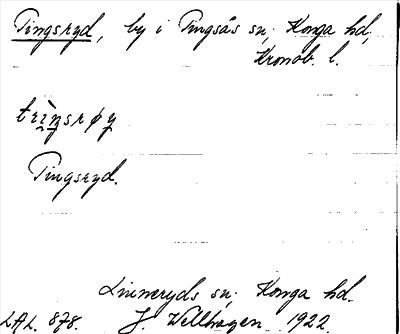 Tingsryd, by i Tingsås sn, Konga hd,
Kronob. l.
Tingsryd.
Linneryds sn, Konga hd.
LAL. 878. J. Wellhagen 1922.